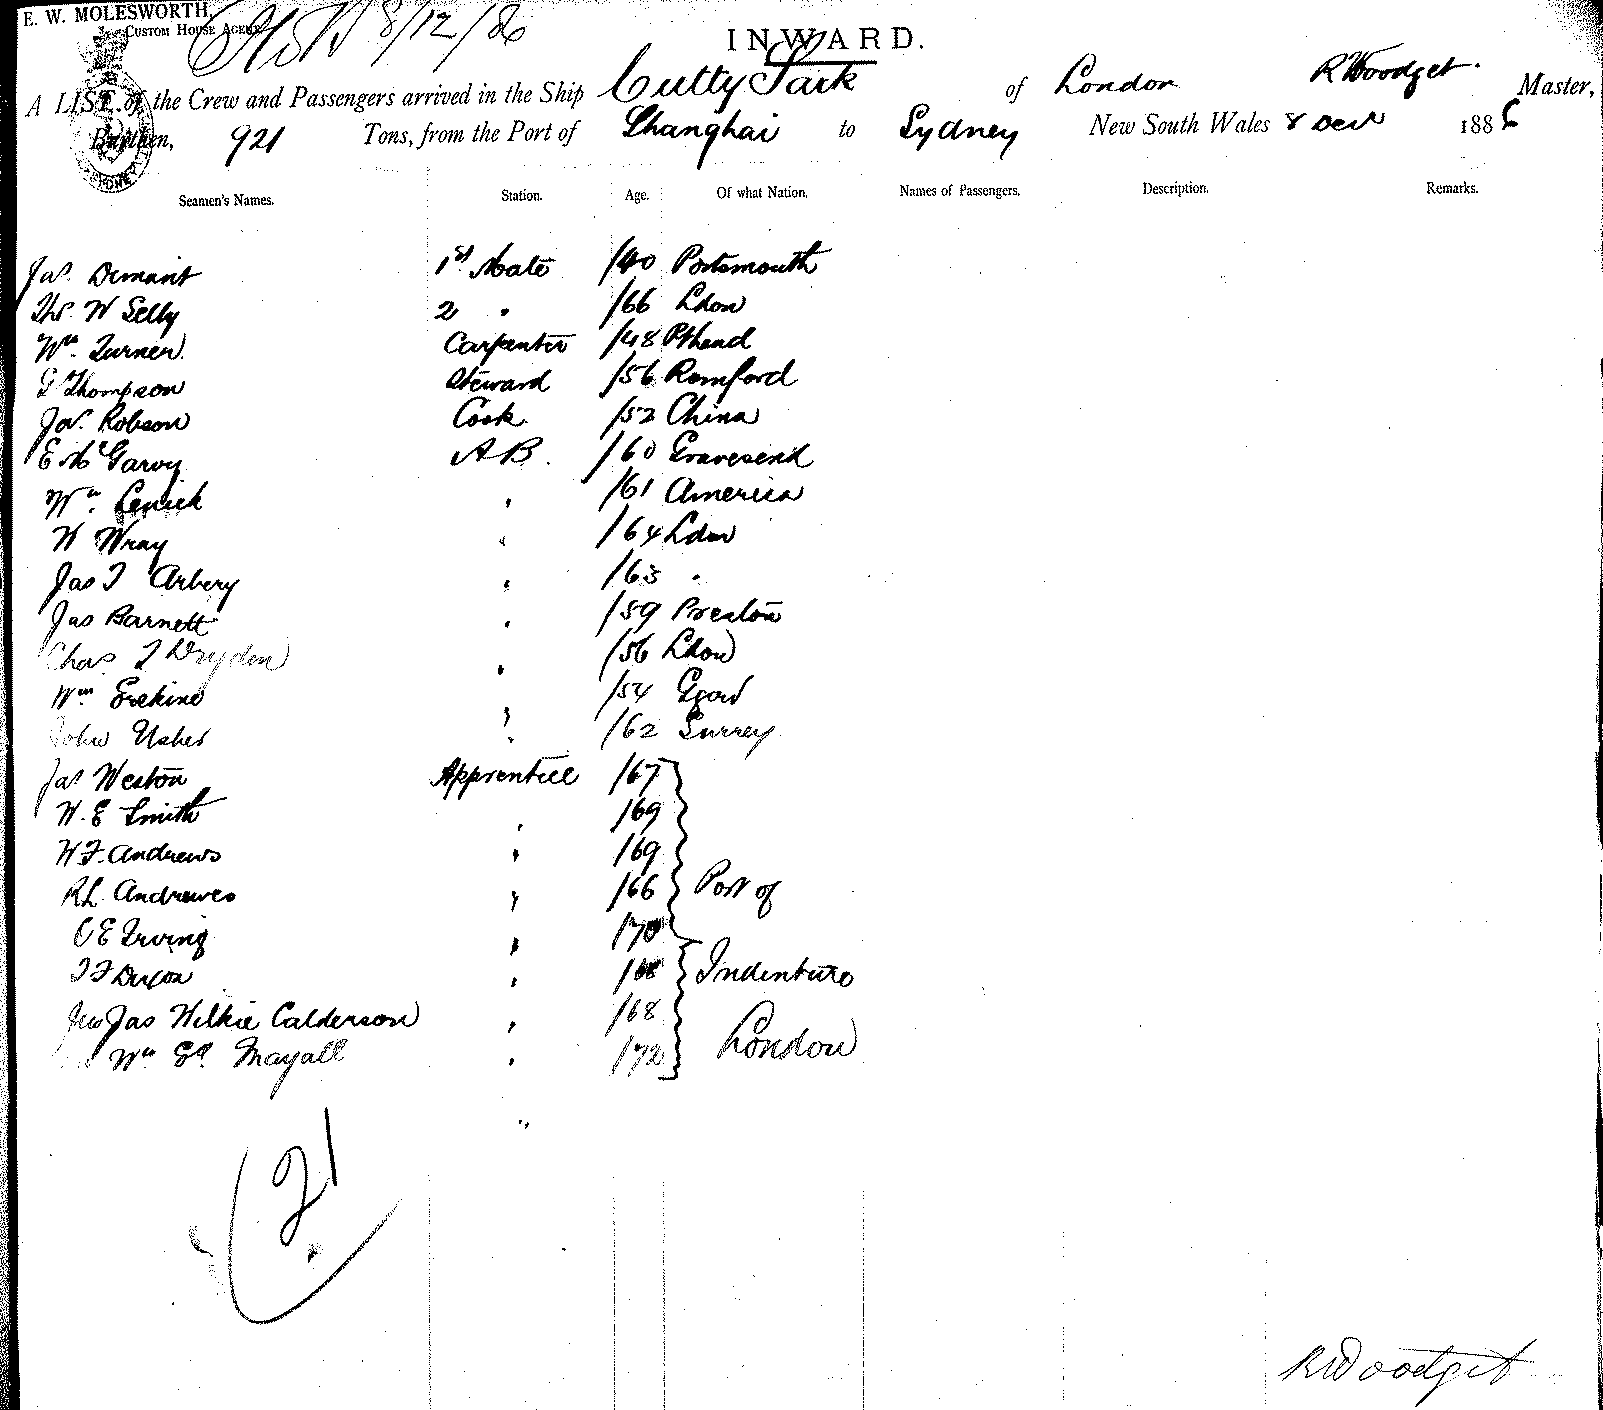 E. W. MOLESWORTH,
CUSTOM HOUSE AGENT
8/12/86
INWARD.
A LIST of the Crew and Passengers arrived in the Ship Cutty Sark of London R Woodget Master,
Burthen, 921 Tons, from the Port of Shanghai to Sydney New South Wales 8 Decr 1886
SYDNEY
Seamen's Names. Station. Age. Of what Nation. Names of Passengers. Description. Remarks.
Jas. Dimant 1st Mate /40 Portsmouth
Thos. W Selby 2 " /66 Ldon
Wm. Turner Carpenter /48 Pthead
G Thompson Steward /56 Romford
Jas. Robson Cook /52 China
E McGarvy AB. /60 Gravesend
Wm. /61 America
W Wray " /64 Ldon
Jas T Arbery " /63 "
Jas Barnett " /59 Preston
Chas T Dryden " /56 Ldon
Wm Erskine " /54
John Usher " /62 Surrey
Jas Weston Apprentice /67
W. E Smith " /69
W F. Andrews " /69
R L. Andrewes " /66 Port of
C E Irving " /70
T F Dixon " /68 Indenture
Jno Jas Wilkie Calderson " /68
Wm Mayall " /72 London
21
R Woodget